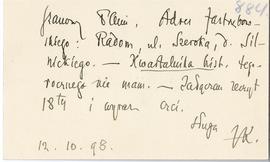 884
Szanowny Panie, Adres Jastrzębow-
skiego: Radom, ul. Szeroka, d. Sil-
nickiego. — Kwartalnika hist. tego-
rocznego nie mam. — Załączam zeszyt
18ty i wyrazy czci.
Sługa
12. 10. 98.